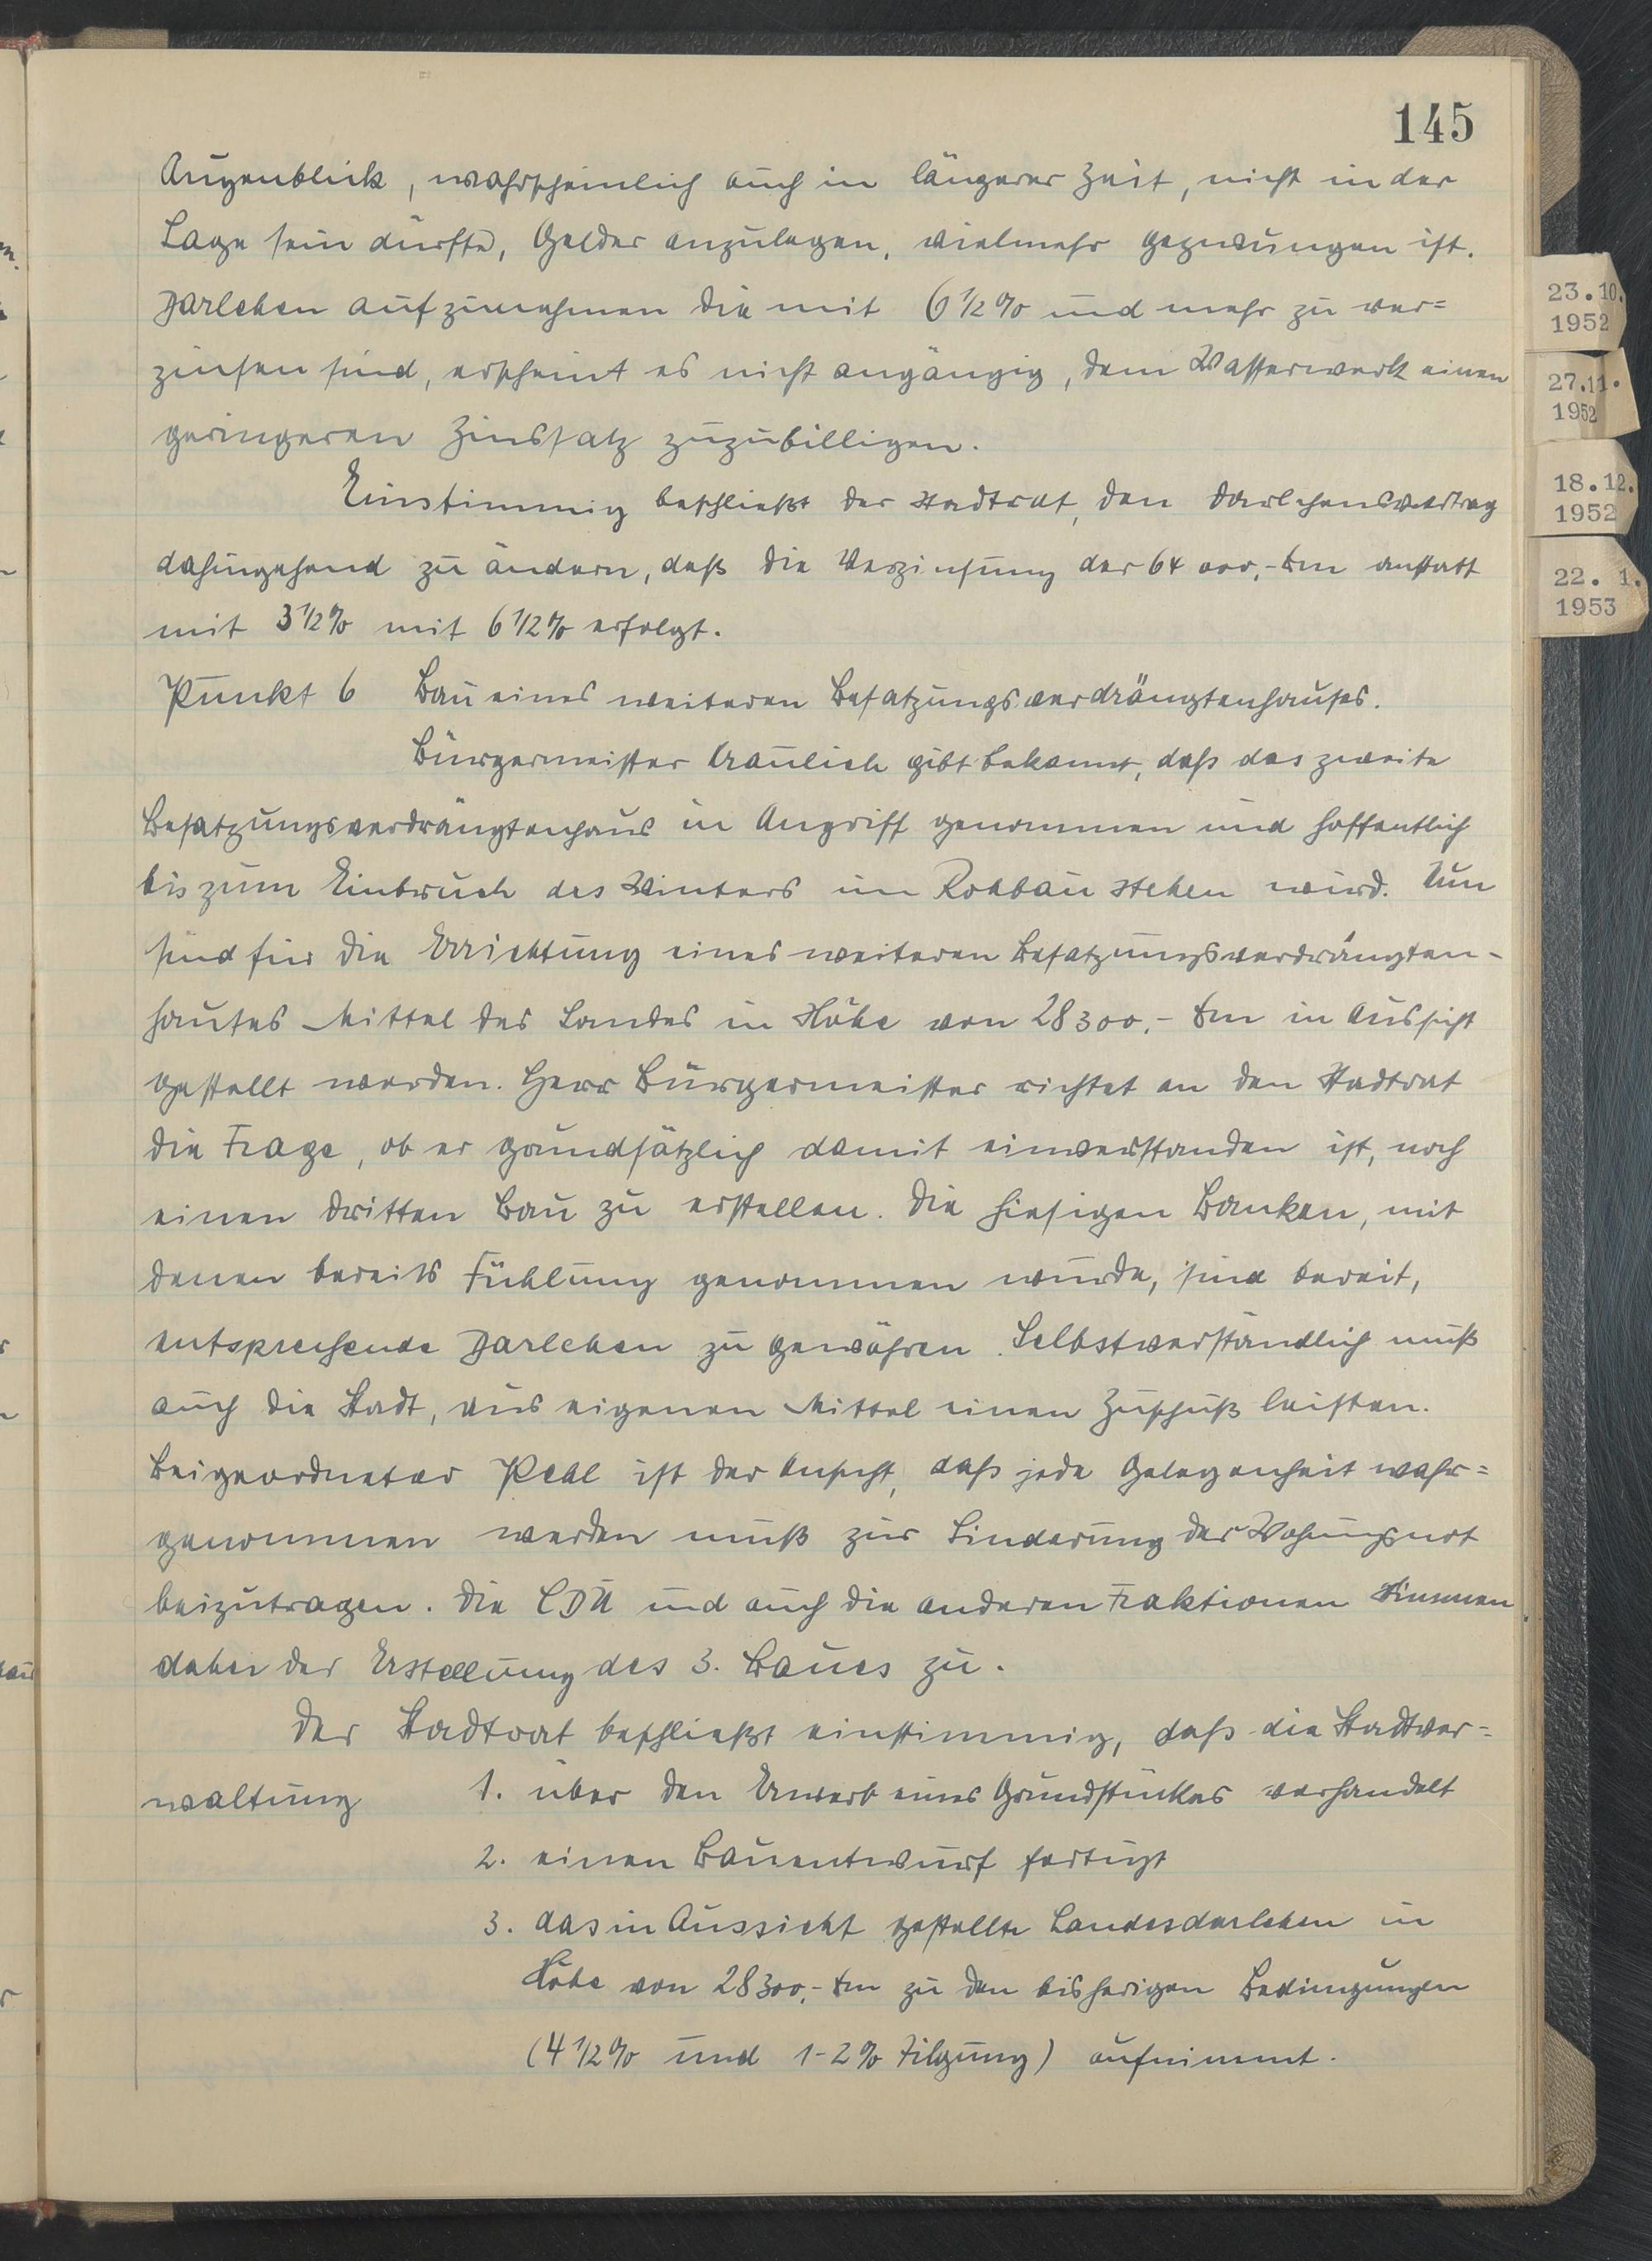 145
Augenblick, wahrscheinlich auch in längerer Zeit, nicht in der
Lage sein dürfte, Gelder anzulegen, vielmehr gezwungen ist.
Darlehen aufzunehmen die mit 6 1/2 % und mehr zu ver=
zinsen sind, erscheint es nicht angängig, dem Wasserwerk einen
geringeren Zinssatz zuzubilligen.
Einstimmig beschließt der Stadtrat, den Darlehensvertrag
dahingehend zu ändern, daß die Verzinsung der 64 000,- Dm anstatt
mit 3 1/2 % mit 6 1/2 % erfolgt.
Punkt 6 Bau eines weiteren Besatzungsverdrängtenhauses.
Bürgermeister gibt bekannt, daß das zweite
Besatzungsverdrängtenhaus in Angriff genommen und hoffentlich
bis zum Einbruch des Winters im Rohbau stehen wird. Nun
sind für die Errichtung eines weiteren Besatzungsverdrängten-
hauses Mittel des Landes in Höhe von 28 300,- Dm in Aussicht
gestellt worden. Herr Bürgermeister richtet an den Stadtrat
die Frage, ob er grundsätzlich damit einverstanden ist, noch
einen dritten Bau zu erstellen. Die hiesigen Banken, mit
denen bereits Fühlung genommen wurde, sind bereit,
entsprechende Darlehen zu gewähren. Selbstverständlich muß
auch die Stadt, aus eigenen Mittel einen Zuschuß leisten.
Beigeordneter ist der Ansicht, daß jede Gelegenheit wahr=
genommen werden muß zur Linderung der Wohungsnot
beizutragen. Die CDU und auch die anderen Fraktionen stimmen
daher der Erstellung des 3. Baues zu.
Der Stadtrat beschließt einstimmig, daß die Stadtver=
waltung 1. über den Erwerb eines Grundstückes verhandelt
2. einen Bauentwurf fertigt
3. das in Aussicht gestellte Landesdarlehen in
Höhe von 28 300,- Dm zu den bisherigen Bedingungen
(4 1/2 % und 1-2 % Tilgung) aufnimmt.
23.10.
1952
27.11.
1952
18.12.
1952
22. 1.
1953